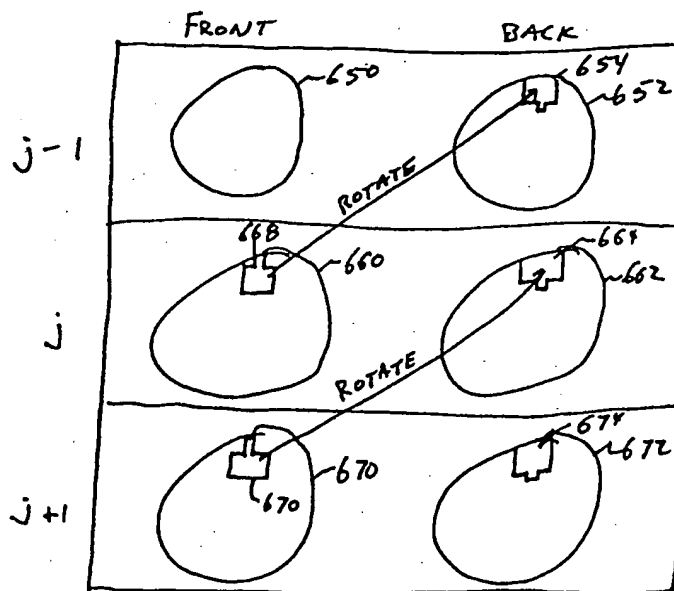 FRONT BACK
650 654
652
j-1
ROTATE
668 664
660 662
j
ROTATE
674
670 672
670
j+1